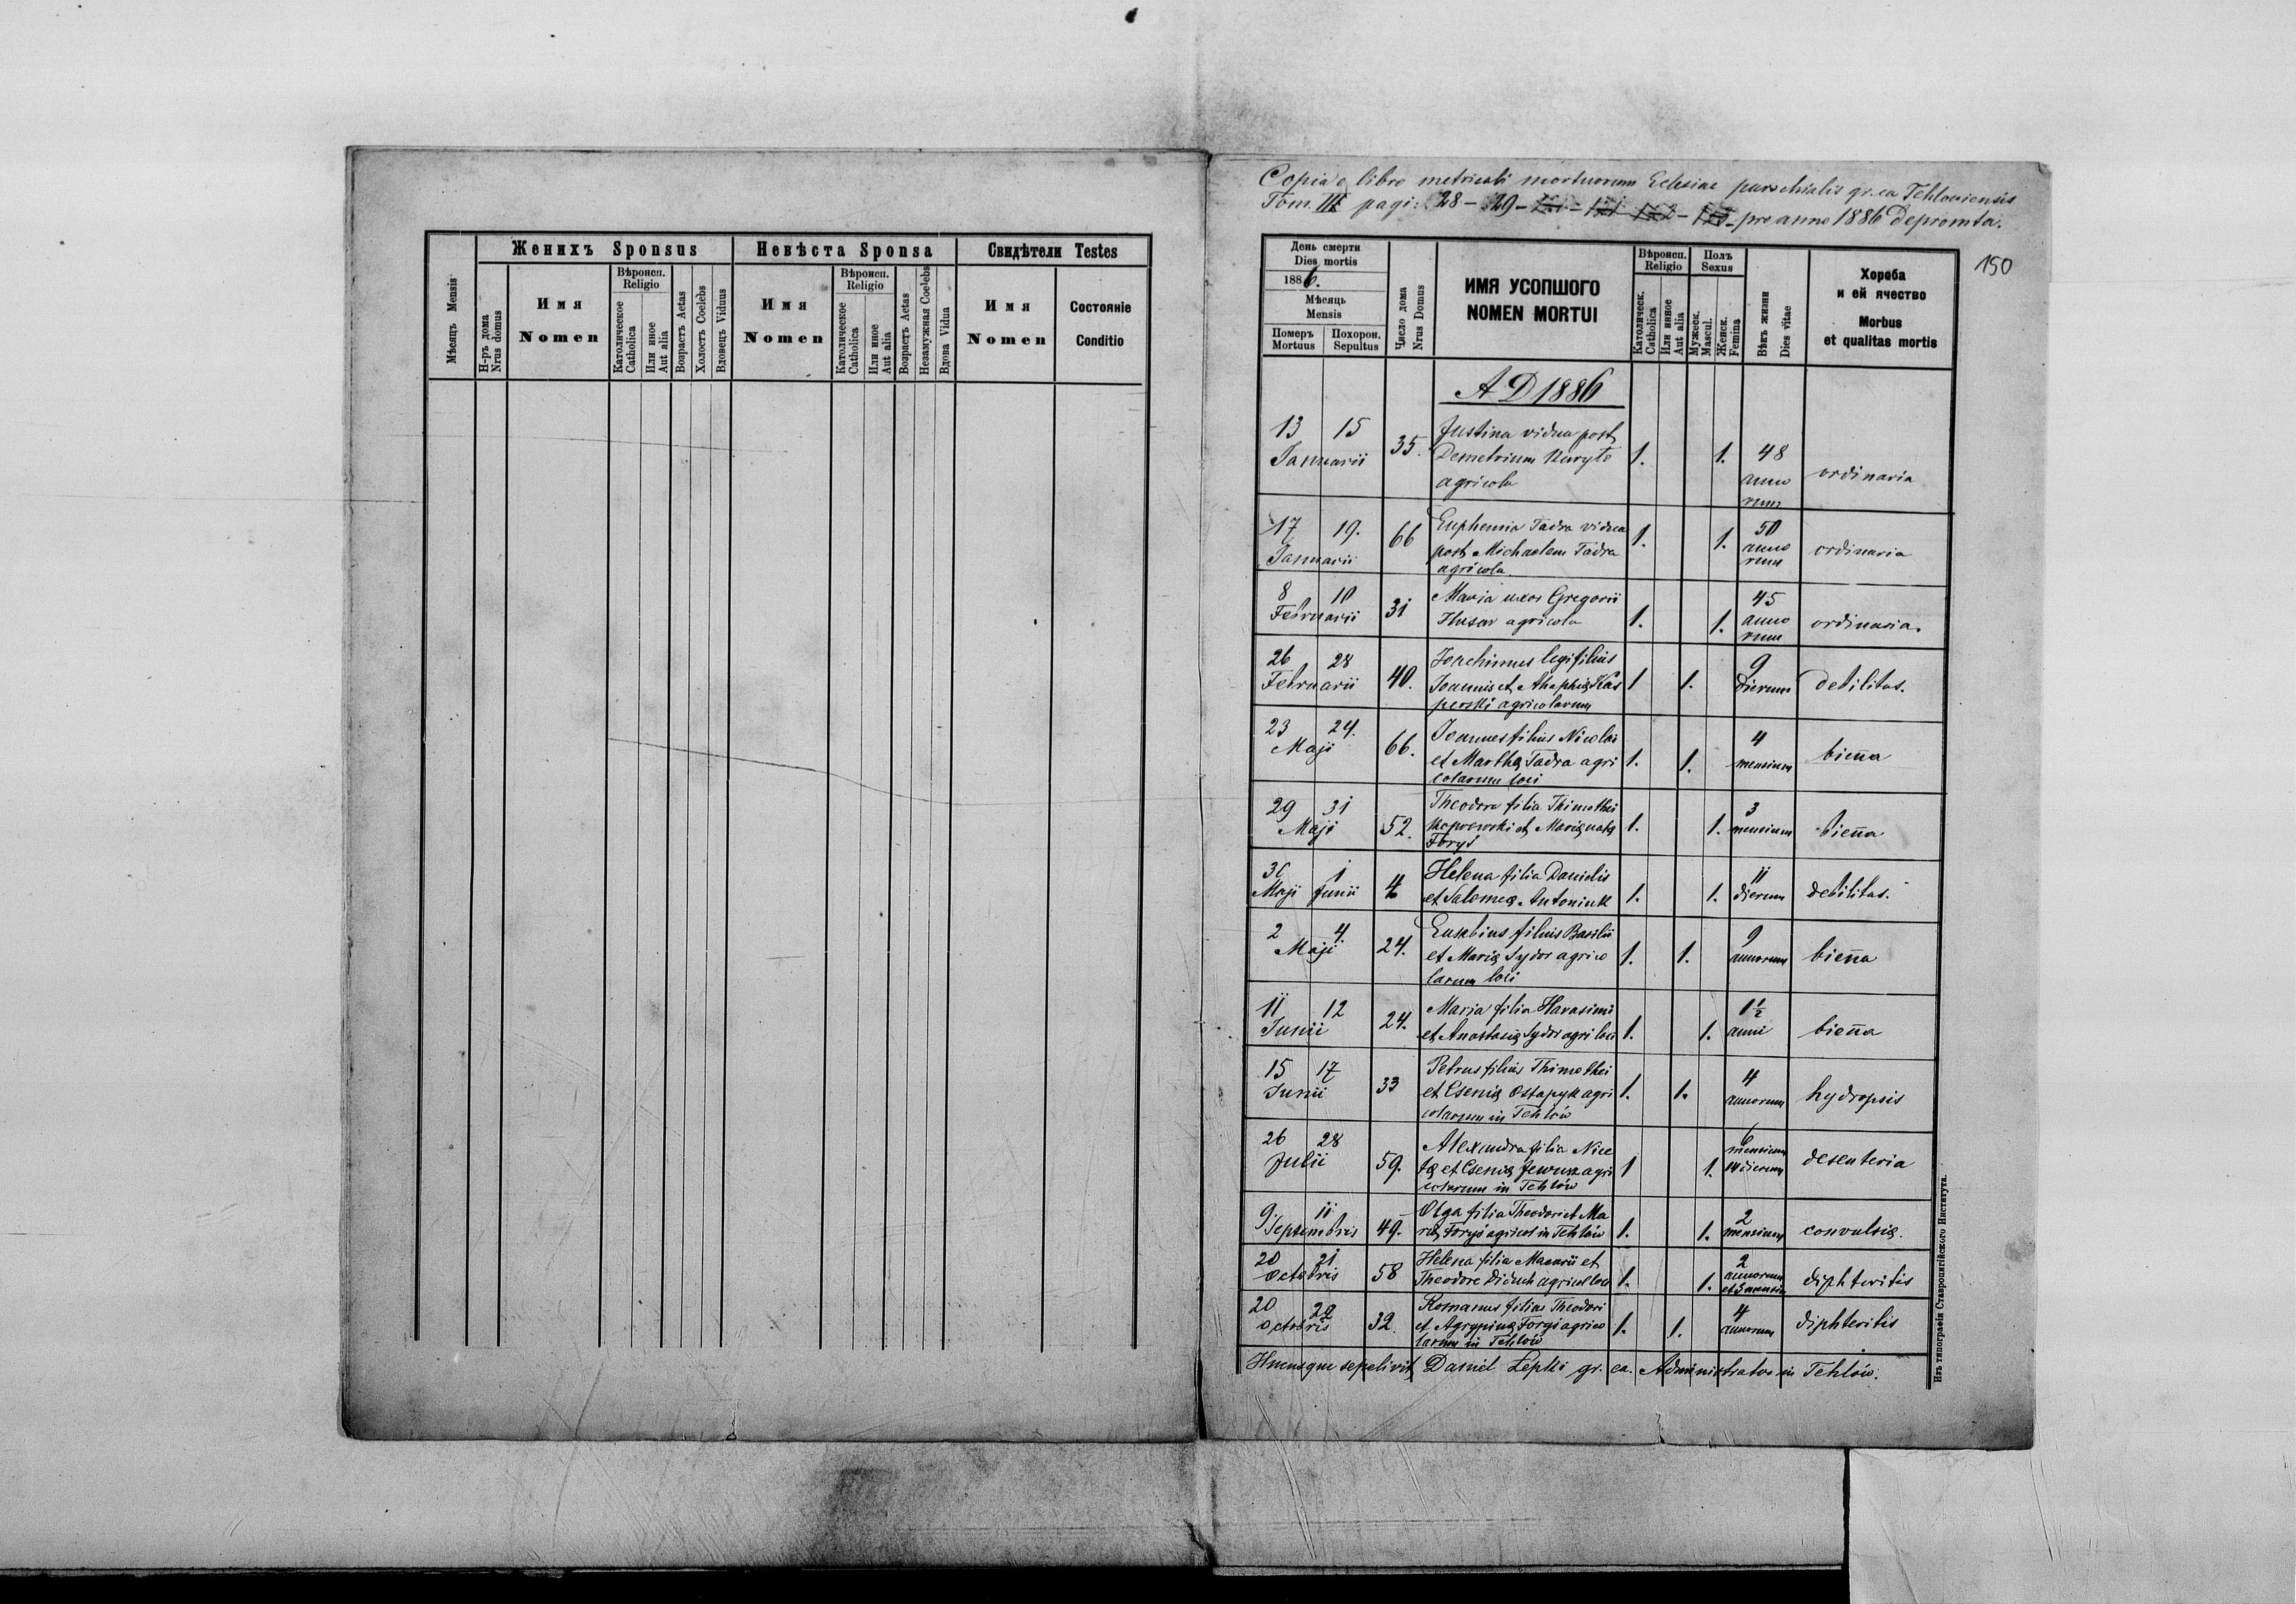 Женихъ Sponsus
Невѣста Sponsa
Свидѣтели Testes
Мѣсяцъ Mensis
Н-ръ дома Nrus domus
Имя
Nomen
Вѣроисп.
Religio
Католическое Catholica
Или иное Aut alia
Возрастъ Aetas
Холостъ Coelebs
Вдовецъ Viduus
Имя
Nomen
Вѣроисп.
Religio
Католическое Catholica
Или иное Aut alia
Возрастъ Aetas
Незамужная Coelebs
Вдова Vidua
Имя
Nomen
Состояніе
Conditio
Copia e libro metricali mortuorum Eclesiae parochialis gr. ca Tehloviensis
Tom. III pagi: 28 - 29 - pro anno 1886 depromta.
150
День смерти
Dies mortis
1886.
Мѣсяць
Mensis
Померъ Mortuus
Похорон. Sepultus
Число дома Nrus Domus
ИМЯ УСОПШОГО
NOMEN MORTUI
Вѣроисп.
Religio
Католическ. Catholica
Или иное Aut alia
Полъ
Sexus
Мужеск. Mascul.
Женск. Femina
Вѣкъ жизни
Dies vitae
Хороба
и ей ячество
Morbus
et qualitas mortis
A D 1886
13 15 Januarii 35. Justina vidua post
Demetrium Kuryto
agricola 1. 1. 48 annorum ordinaria
17 19. Januarii 66 Euphemia Tadra vidua
post Michaelem Tadra
agricola. 1. 1. 50 annorum ordinaria
8 10 Februarii 31 Maria uxor Gregorii
Husar agricola 1. 1. 45 annorum ordinaria.
26 28 Februarii 40. Joachimus legi filius
Joannis et Kas
perski agricolarum 1 1. 9 dierum debilitas.
23 24. Maji 66. Joannes filius Nicolai
et Martha Tadra agri
colarum loci 1. 1. 4 mensium bien̄a
29 31 Maji 52. Theodora filia Thimothei
et Maria nata
Forys 1. 1. 3 mensium bien̄a
30 Maji 1 Junii 4 Helena filia Danielis
et Salomea Antoniuk 1. 1. 11 dierum debilitas.
2 4. Maji 24. Eusebius filius Basilii
et Maria Sydor agrico
larum loci 1. 1. 9 annorum bien̄a
11 12 Junii 24. Maria filia Harasimi
et Anastasia Sydor agri loci 1. 1. 1½ anni bien̄a
15 17 Junii 33 Petrus filius Thimothei
et Csenia Ostapyk agri
colarum in Tehlów 1. 1. 4 annorum hydropsis
26 28 Julii 59. Alexandra filia Nice
ta et Csenia agri
colarum in Tehlów 1 1. 6 mensium dierum desenteria
9 11 Septembris 49. Olga filia Theodori et Ma
ria Forys agricol in Tehlów 1. 1. 2 mensium convulsia.
20 21 Octobris 58 Helena filia Macarii et
Theodore Diduch agricol loci 1. 1. 2 annorum diphteritis
20 22 Octobris 32. Romanus filius Theodori
et Agrypina Forys agrico
larum in Tehlów 1. 1. 4 annorum diphteritis
Hucusque sepelivit Daniel Lepki gr. ca. Administrator in Tehlów.
Изъ типографіи Ставропигійского Института.